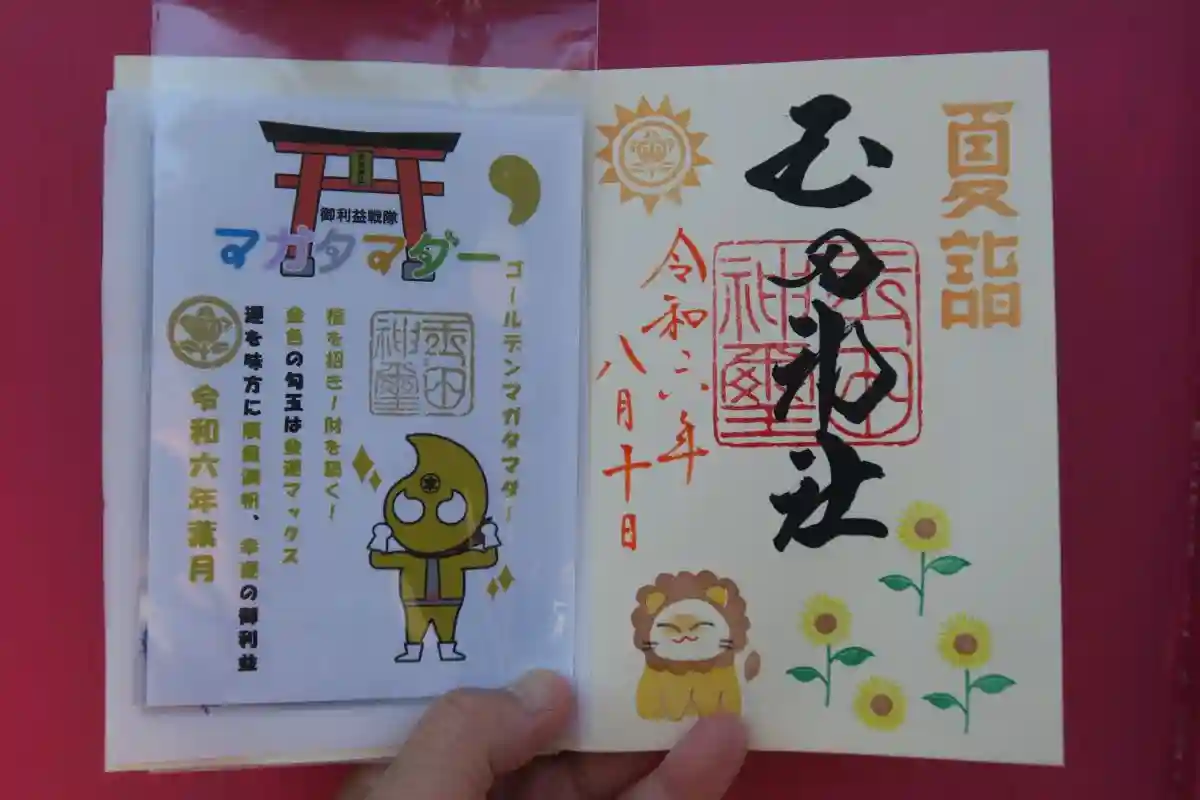 夏詣
玉田神社
玉田
神璽
令和六年
八月十日
御利益戦隊
マガタマダー
ゴールデンマガタマダー
玉田
神璽
福を招き!財を築く!
金色の勾玉は金運マックス
運を味方に順風満帆、幸運の御利益
令和六年葉月